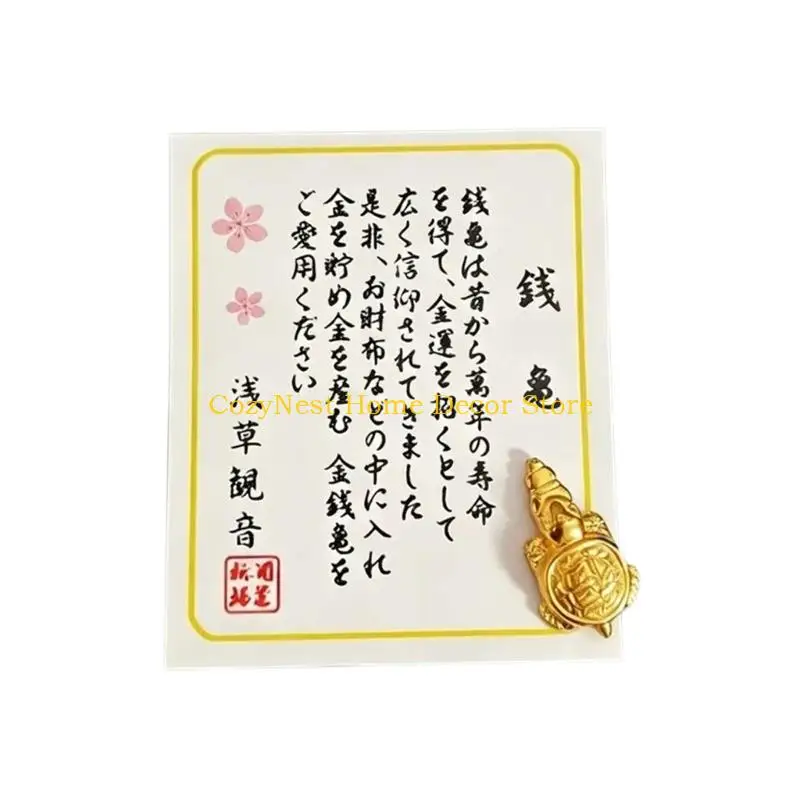 銭亀
銭亀は昔から萬年の寿命
を得て、金運を招くとして
広く信仰されてきました
是非、お財布などの中に入れ
金を貯め金を産む 金銭亀を
ご愛用ください
浅草観音
CozyNest Home Decor Store